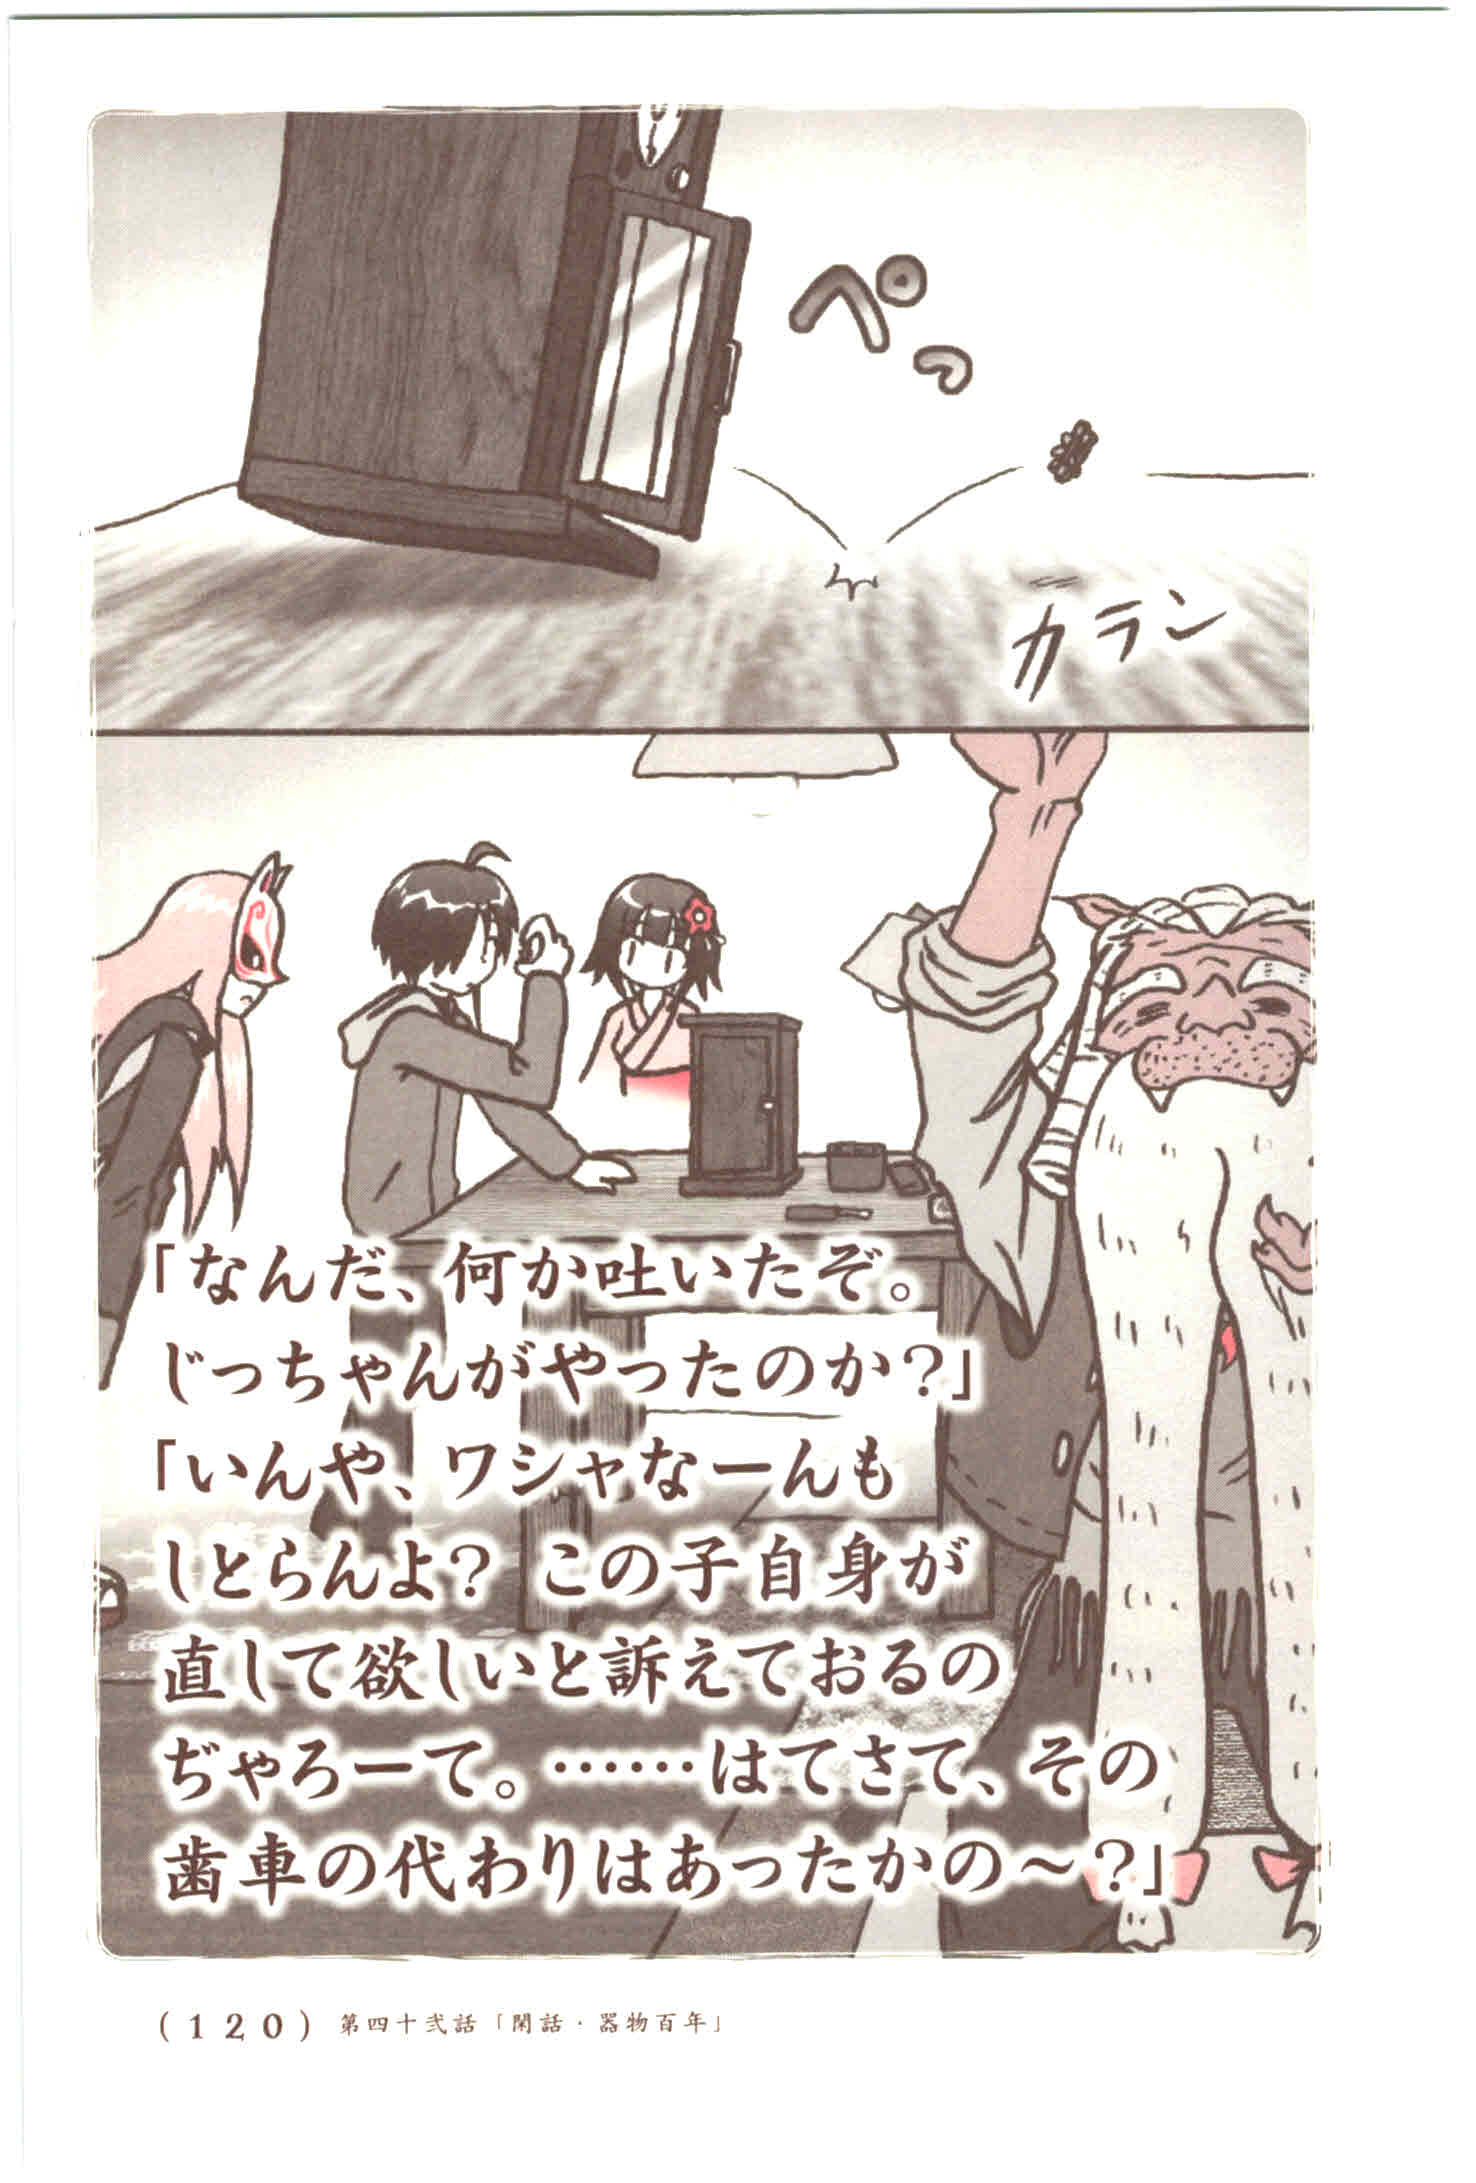 ぺっ
カラン
「なんだ、何か吐いたぞ。
じっちゃんがやったのか?」
「いんや、ワシャなーんも
しとらんよ? この子自身が
直して欲しいと訴えておるの
ぢゃろーて。……はてさて、その
歯車の代わりはあったかの~?」
(120) 第四十弐話「閑話・器物百年」